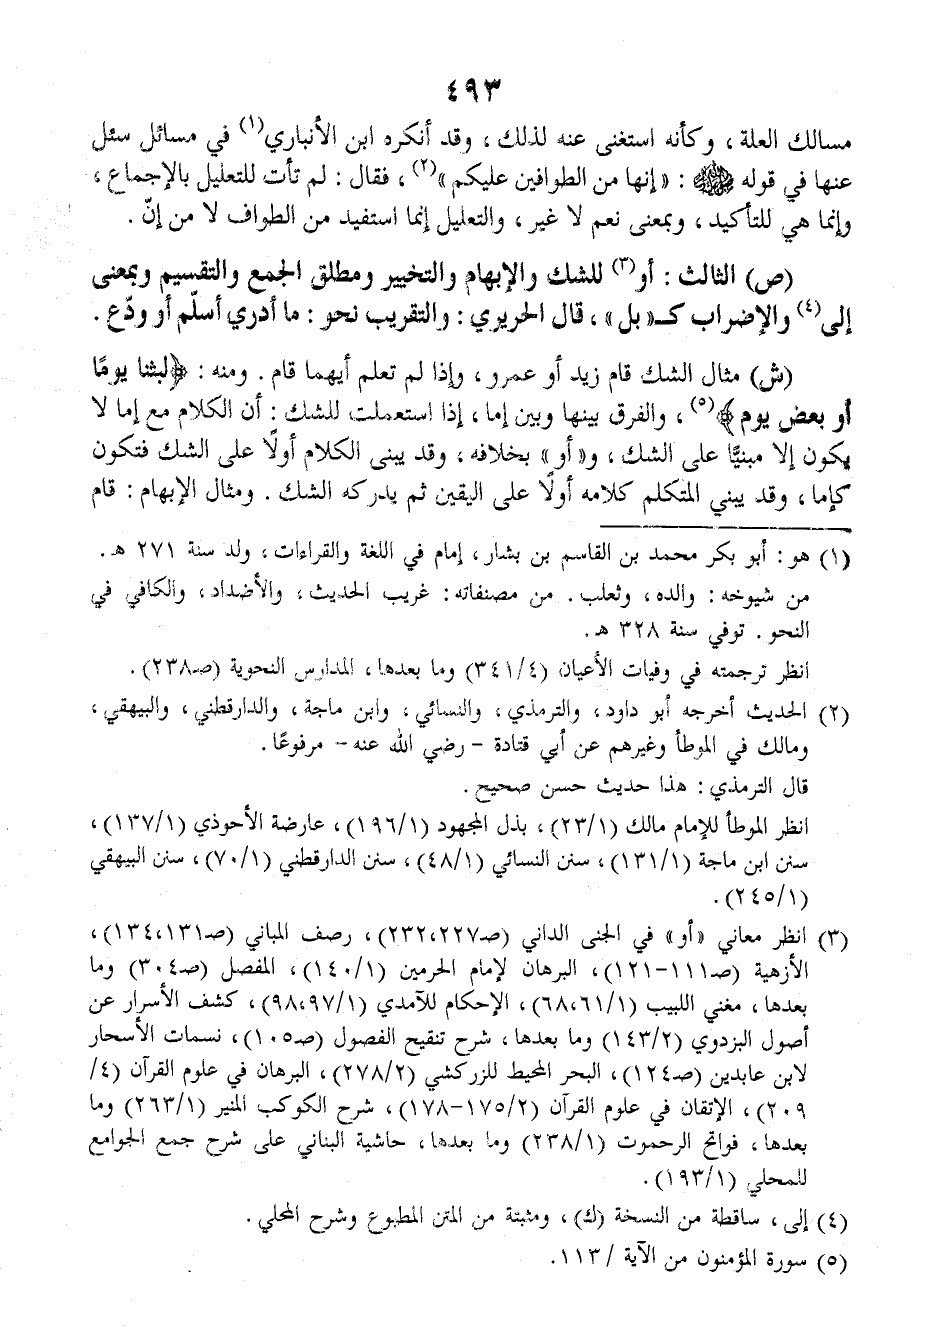 ٤٩٣
مسالك العلة ، وكأنه استغنى عنه لذلك ، وقد أنكره ابن الأنباري(١) في مسائل سئل
عنها في قوله ﷺ : «إنها من الطوافين عليكم»(٢) ، فقال : لم تأت للتعليل بالإجماع ،
وإنما هي للتأكيد ، وبمعنى نعم لا غير ، والتعليل إنما استفيد من الطواف لا من إنّ .
(ص) الثالث : أو(٣) للشك والإبهام والتخيير ومطلق الجمع والتقسيم وبمعنى
إلى(٤) والإضراب كـ«بل» ، قال الحريري : والتقريب نحو : ما أدري أسلّم أو ودّع .
(ش) مثال الشك قام زيد أو عمرو ، وإذا لم تعلم أيهما قام . ومنه : ﴿لبثنا يومًا
أو بعض يوم﴾(٥) ، والفرق بينها وبين إما ، إذا استعملت للشك : أن الكلام مع إما لا
يكون إلا مبنيًّا على الشك ، و«أو» بخلافه ، وقد يبنى الكلام أولًا على الشك فتكون
كإما ، وقد يبني المتكلم كلامه أولًا على اليقين ثم يدركه الشك . ومثال الإبهام : قام
(١) هو : أبو بكر محمد بن القاسم بن بشار ، إمام في اللغة والقراءات ، ولد سنة ٢٧١ هـ .
من شيوخه : والده ، وثعلب . من مصنفاته : غريب الحديث ، والأضداد ، والكافي في
النحو . توفي سنة ٣٢٨ هـ .
انظر ترجمته في وفيات الأعيان (٣٤١/٤) وما بعدها ، المدارس النحوية (صـ٢٣٨) .
(٢) الحديث أخرجه أبو داود ، والترمذي ، والنسائي ، وابن ماجة ، والدارقطني ، والبيهقي ،
ومالك في الموطأ وغيرهم عن أبي قتادة – رضي الله عنه – مرفوعًا .
قال الترمذي : هذا حديث حسن صحيح .
انظر الموطأ للإمام مالك (٢٣/١) ، بذل المجهود (١٩٦/١) ، عارضة الأحوذي (١٣٧/١) ،
سنن ابن ماجة (١٣١/١) ، سنن النسائي (٤٨/١) ، سنن الدارقطني (٧٠/١) ، سنن البيهقي
(٢٤٥/١) .
(٣) انظر معاني «أو» في الجنى الداني (صـ٢٣٢،٢٢٧) ، رصف المباني (صـ١٣٤،١٣١) ،
الأزهية (صـ١١١–١٢١) ، البرهان لإمام الحرمين (١٤٠/١) ، المفصل (صـ٣٠٤) وما
بعدها ، مغني اللبيب (٦٨،٦١/١) ، الإحكام للآمدي (٩٨،٩٧/١) ، كشف الأسرار عن
أصول البزدوي (١٤٣/٢) وما بعدها ، شرح تنقيح الفصول (صـ١٠٥) ، نسمات الأسحار
لابن عابدين (صـ١٢٤) ، البحر المحيط للزركشي (٢٧٨/٢) ، البرهان في علوم القرآن (٤/
٢٠٩) ، الإتقان في علوم القرآن (١٧٥/٢–١٧٨) ، شرح الكوكب المنير (٢٦٣/١) وما
بعدها ، فواتح الرحموت (٢٣٨/١) وما بعدها ، حاشية البناني على شرح جمع الجوامع
للمحلي (١٩٣/١) .
(٤) إلى ، ساقطة من النسخة (ك) ، ومثبتة من المتن المطبوع وشرح المحلي .
(٥) سورة المؤمنون من الآية / ١١٣ .